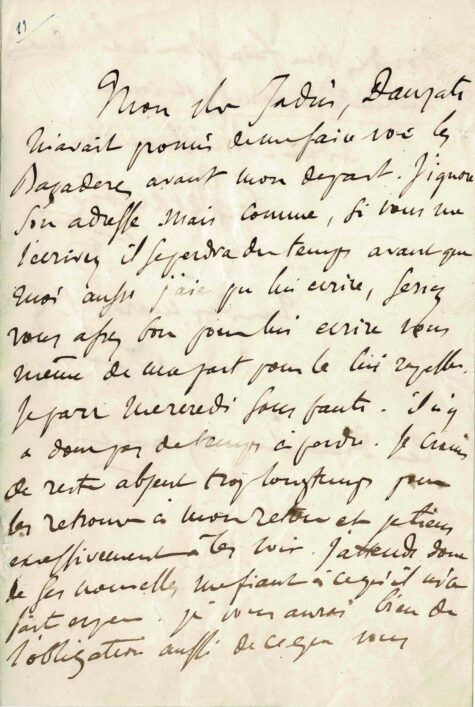 11
Mon cher Jadin, Dauzats
m'avait promis de me faire voir les
Bayaderes avant mon depart. J'ignore
son adresse mais comme, si vous me
l'ecrivez il se perdra du temps avant que
moi aussi j'aie pu lui ecrire, serez
vous assez bon pour lui ecrire vous
même de ma part pour le lui rappeler.
Je pars mercredi sans faute. il n'y
a donc pas de temps à perdre. Je crains
de rester absent trop longtemps pour
les retrouver à mon retour et je tiens
excessivement à les voir. J'attends donc
de ses nouvelles me fiant à ce qu'il m'a
fait
je vous aurai bien de
l'obligation aussi de ce que vous